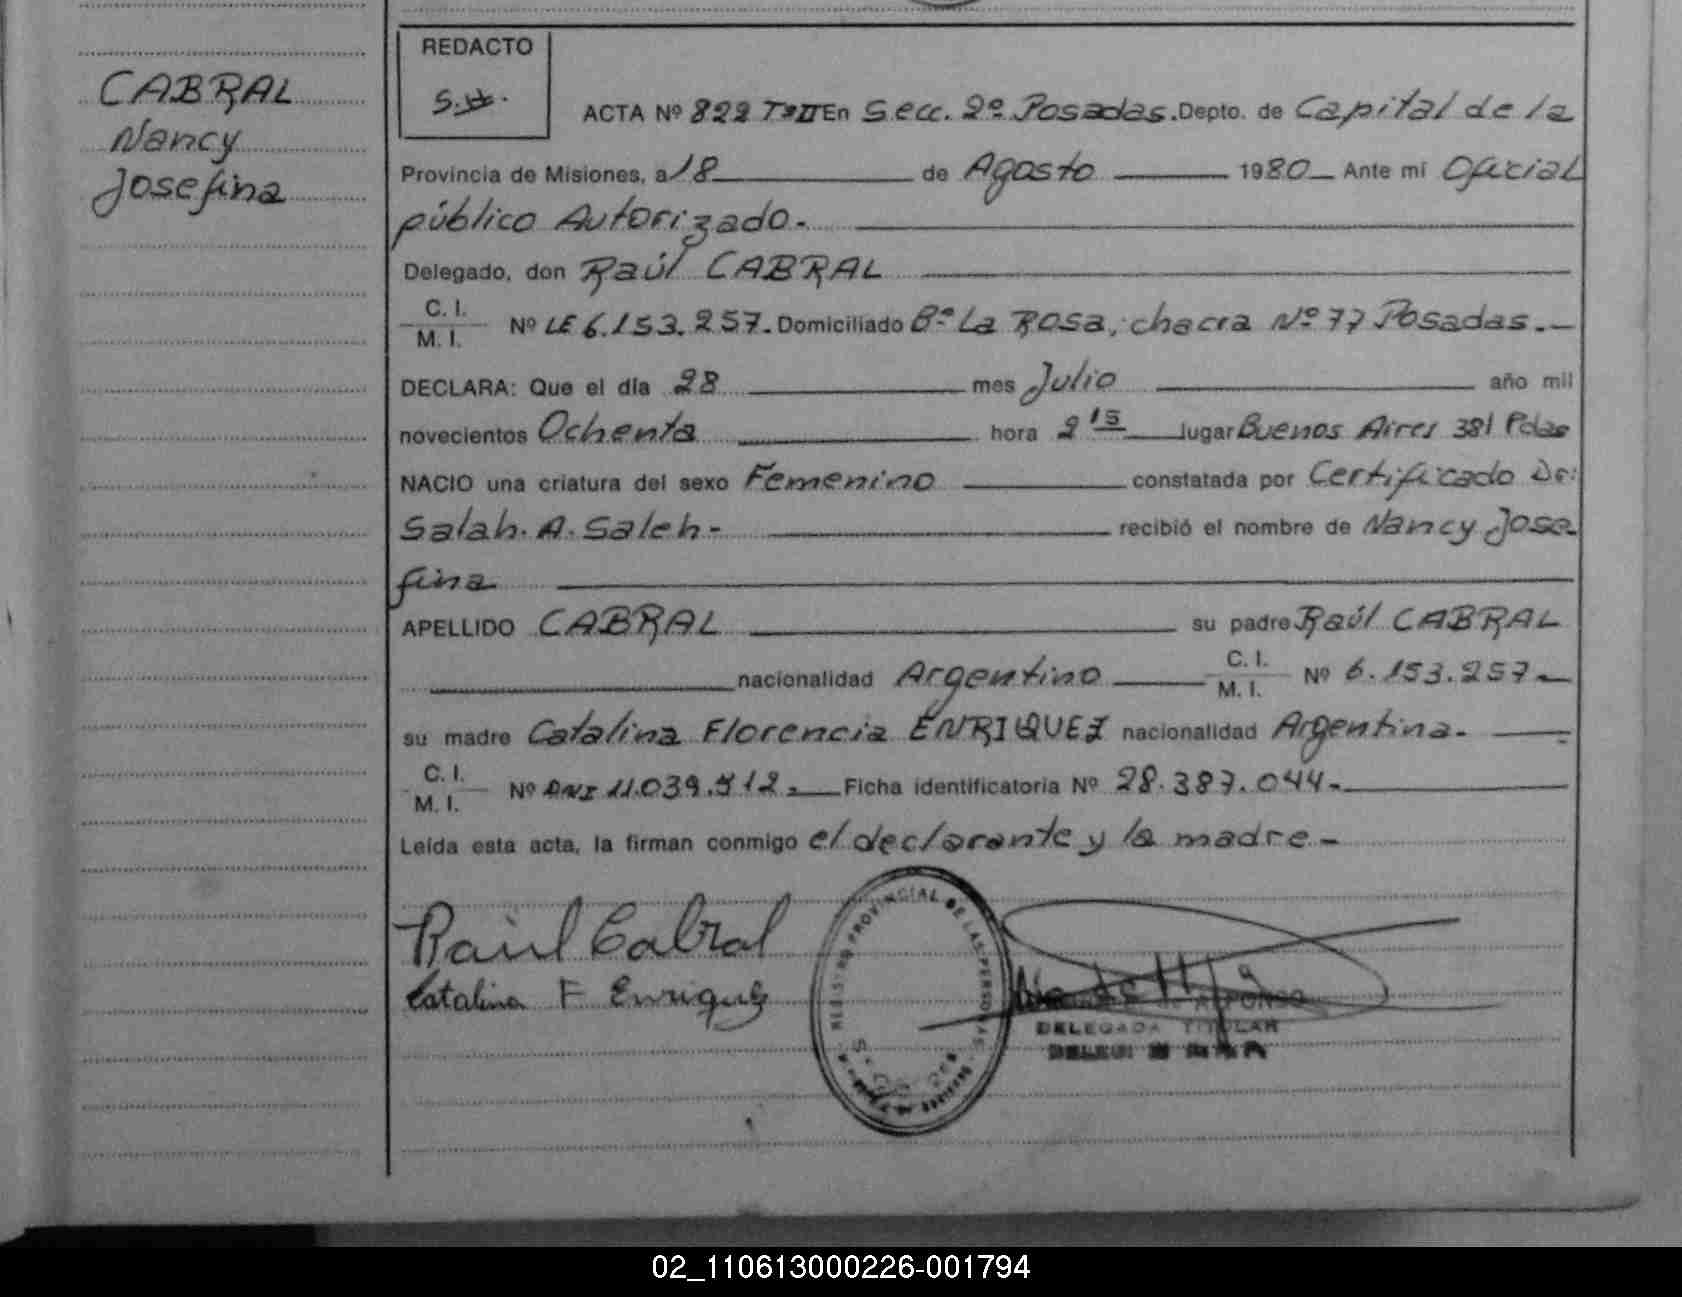 CABRAL
Nancy
Josefina
REDACTO
ACTA Nº 822 Tº II En Secc. 2º Posadas. Depto. de Capital de la
Provincia de Misiones, a 18 de Agosto 1980 Ante mi Oficial
público Autorizado.
Delegado, don Raúl CABRAL
C. I.
M. I. Nº LE 6.153.257. Domiciliado Bº La Rosa, chacra Nº 77 Posadas.
DECLARA: Que el día 28 mes Julio año mil
novecientos Ochenta hora 2 15 lugar Buenos Aires 381 Pdas
NACIO una criatura del sexo Femenino constatada por Certificado Dr:
Salah. A. Saleh- recibió el nombre de Nancy Jose
fina
APELLIDO CABRAL su padre Raúl CABRAL
nacionalidad Argentino C. I.
M. I. Nº 6.153.257
su madre Catalina Florencia ENRIQUEZ nacionalidad Argentina.
C. I.
M. I. Nº DNI Ficha identificatoria Nº 28.387.044.
Leída esta acta, la firman conmigo el declarante y la madre.-
Raúl Cabral
Catalina F Enriquez
REGISTRO PROVINCIAL DE LAS PERSONAS
DELEGADA TITULAR
02_110613000226-001794